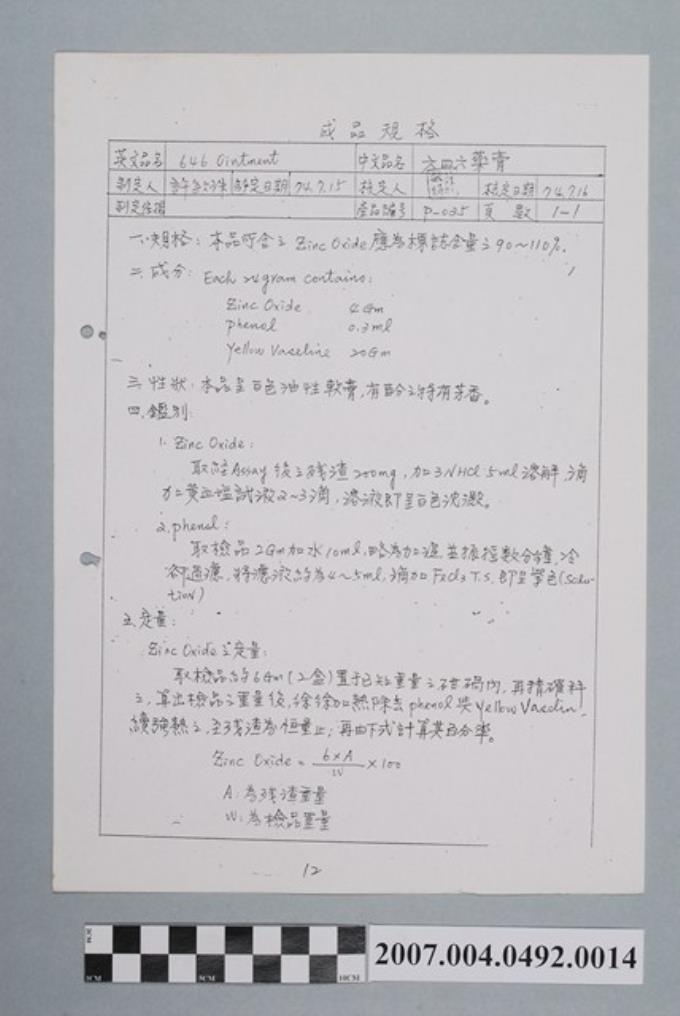 成品規格
英文品名 646 Ointment 中文品名 六四六藥膏
制定人 制定日期 74.7.15 核定人 核定日期 74.7.16
制定依據 產品編號 P-035 頁數 1-1
一、規格：本品所含之 Zinc Oxide 應為標誌含量之90~110%。
二、成分：Each 24 gram contains:
Zinc Oxide 4 Gm
phenol 0.3 ml
Yellow Vaseline 20 Gm
三、性狀：本品呈白色油性軟膏，有酚之特有芳香。
四、鑑別：
1. Zinc Oxide：
取經Assay後之殘渣200mg，加3N HCl 5ml溶解，滴
加黃血塩試液2~3滴，溶液即呈白色沈澱。
2. phenol：
取檢品2Gm加水10ml，略為加溫並振搖數分鐘，冷
卻過濾，將濾液約為4~5ml，滴加FeCl3 T.S.即呈紫色(Solu-
tion)
五、定量：
Zinc Oxide之定量：
取檢品約6Gm(2盒)置于已知重量之坩堝內，再精確秤
之，算出檢品之重量後，徐徐加熱除去phenol與Yellow Vaselin
續強熱之，至殘渣為恒量止；再由下式計算其百分率。
Zinc Oxide = 6×A/W ×100
A：為殘渣重量
W：為檢品重量
12
2007.004.0492.0014
5CM 10CM